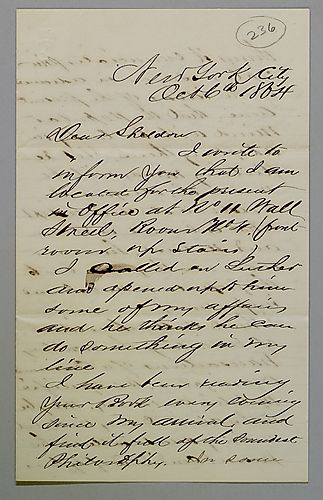 236
New York City
Oct 6th 1864
Dear Sheldon
I write to
inform you that I am
located for the present
in Office at No 11 Wall
Street, Room No 4 front
room up stairs
I called on
and opened up to him
some of my affairs
and he thinks he can
do something in my
line
I have been reading
your Book every evening
since my arrival and
find it full of the soundest
Philosophy. In some